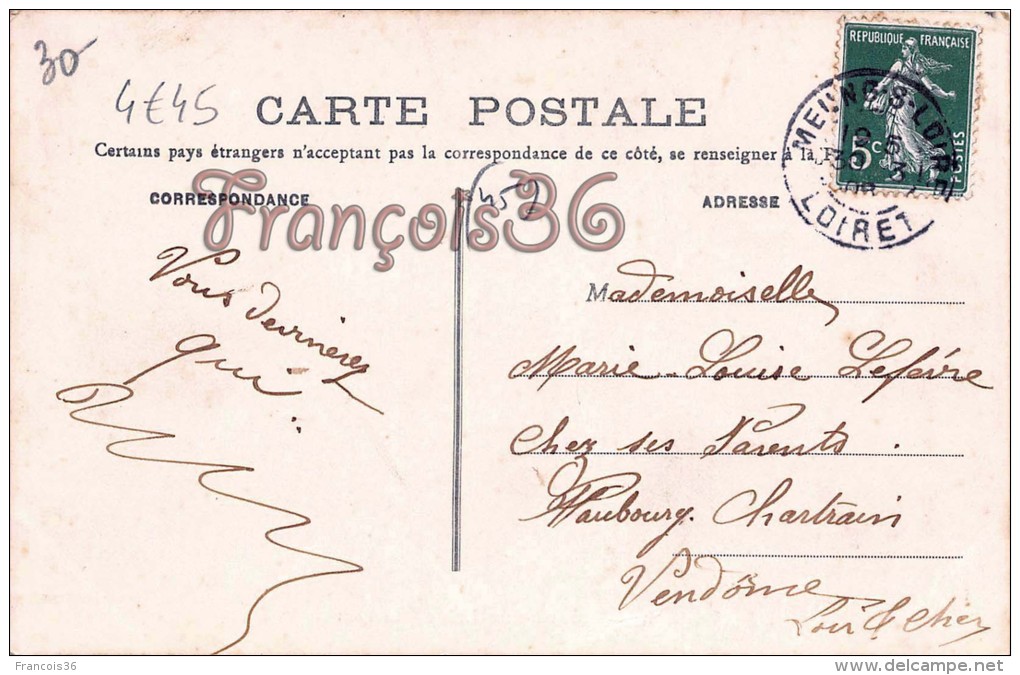 30
4E45
CARTE POSTALE
Certains pays étrangers n'acceptant pas la correspondance de ce côté, se renseigner à la
CORRESPONDANCE
ADRESSE
François36
Vous devinerez
qui
Mademoiselle
Marie-Louise Lefèvre
Chez ses Parents.
Faubourg. Chartrain
Vendôme
Loir & Cher
REPUBLIQUE FRANÇAISE
5c
POSTES
MEUNG-S-LOIRE
LOIRET
Francois36
delcampe.net